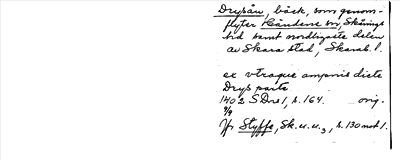 Drysån, bäck, som genom-
flyter Händene sn, Skånings
hd samt nordligaste delen
av Skara stad, Skarab. l.
ex vtraque ampnis dicte
Drys parte
1402 SDns 1, s. 164. orig.
9/9
Jfr Styffe, Sk. u. u.3, s. 130 not 1.